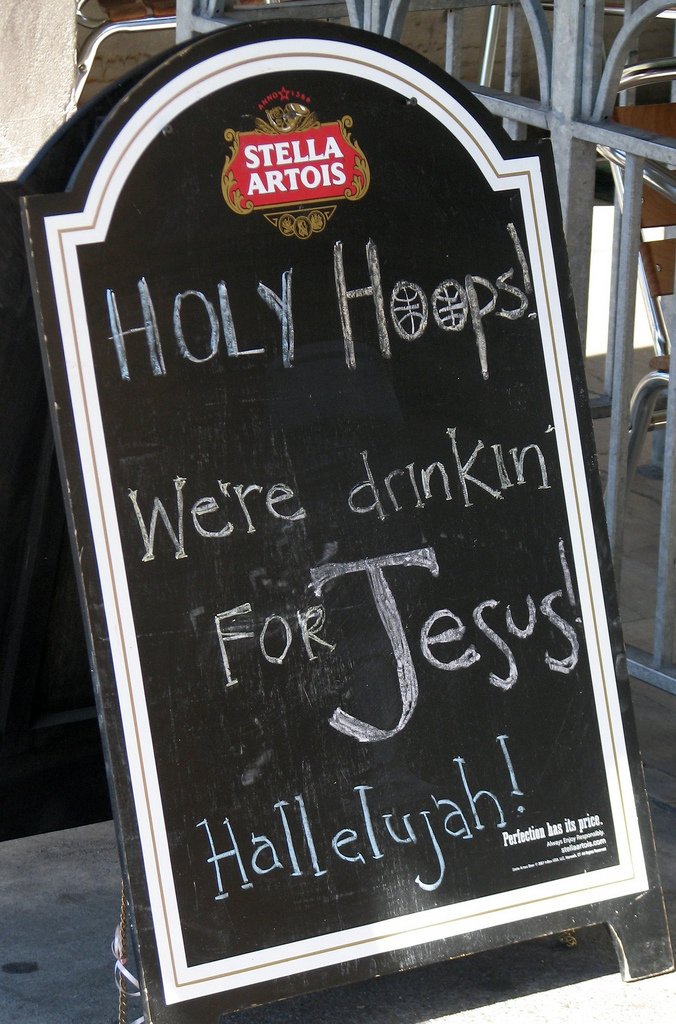 ANNO 1366
STELLA
ARTOIS
HOLY Hoops!
We're drinkin'
FOR Jesus!
Hallelujah!
Perfection has its price.
Always Enjoy Responsibly.
stellaartois.com